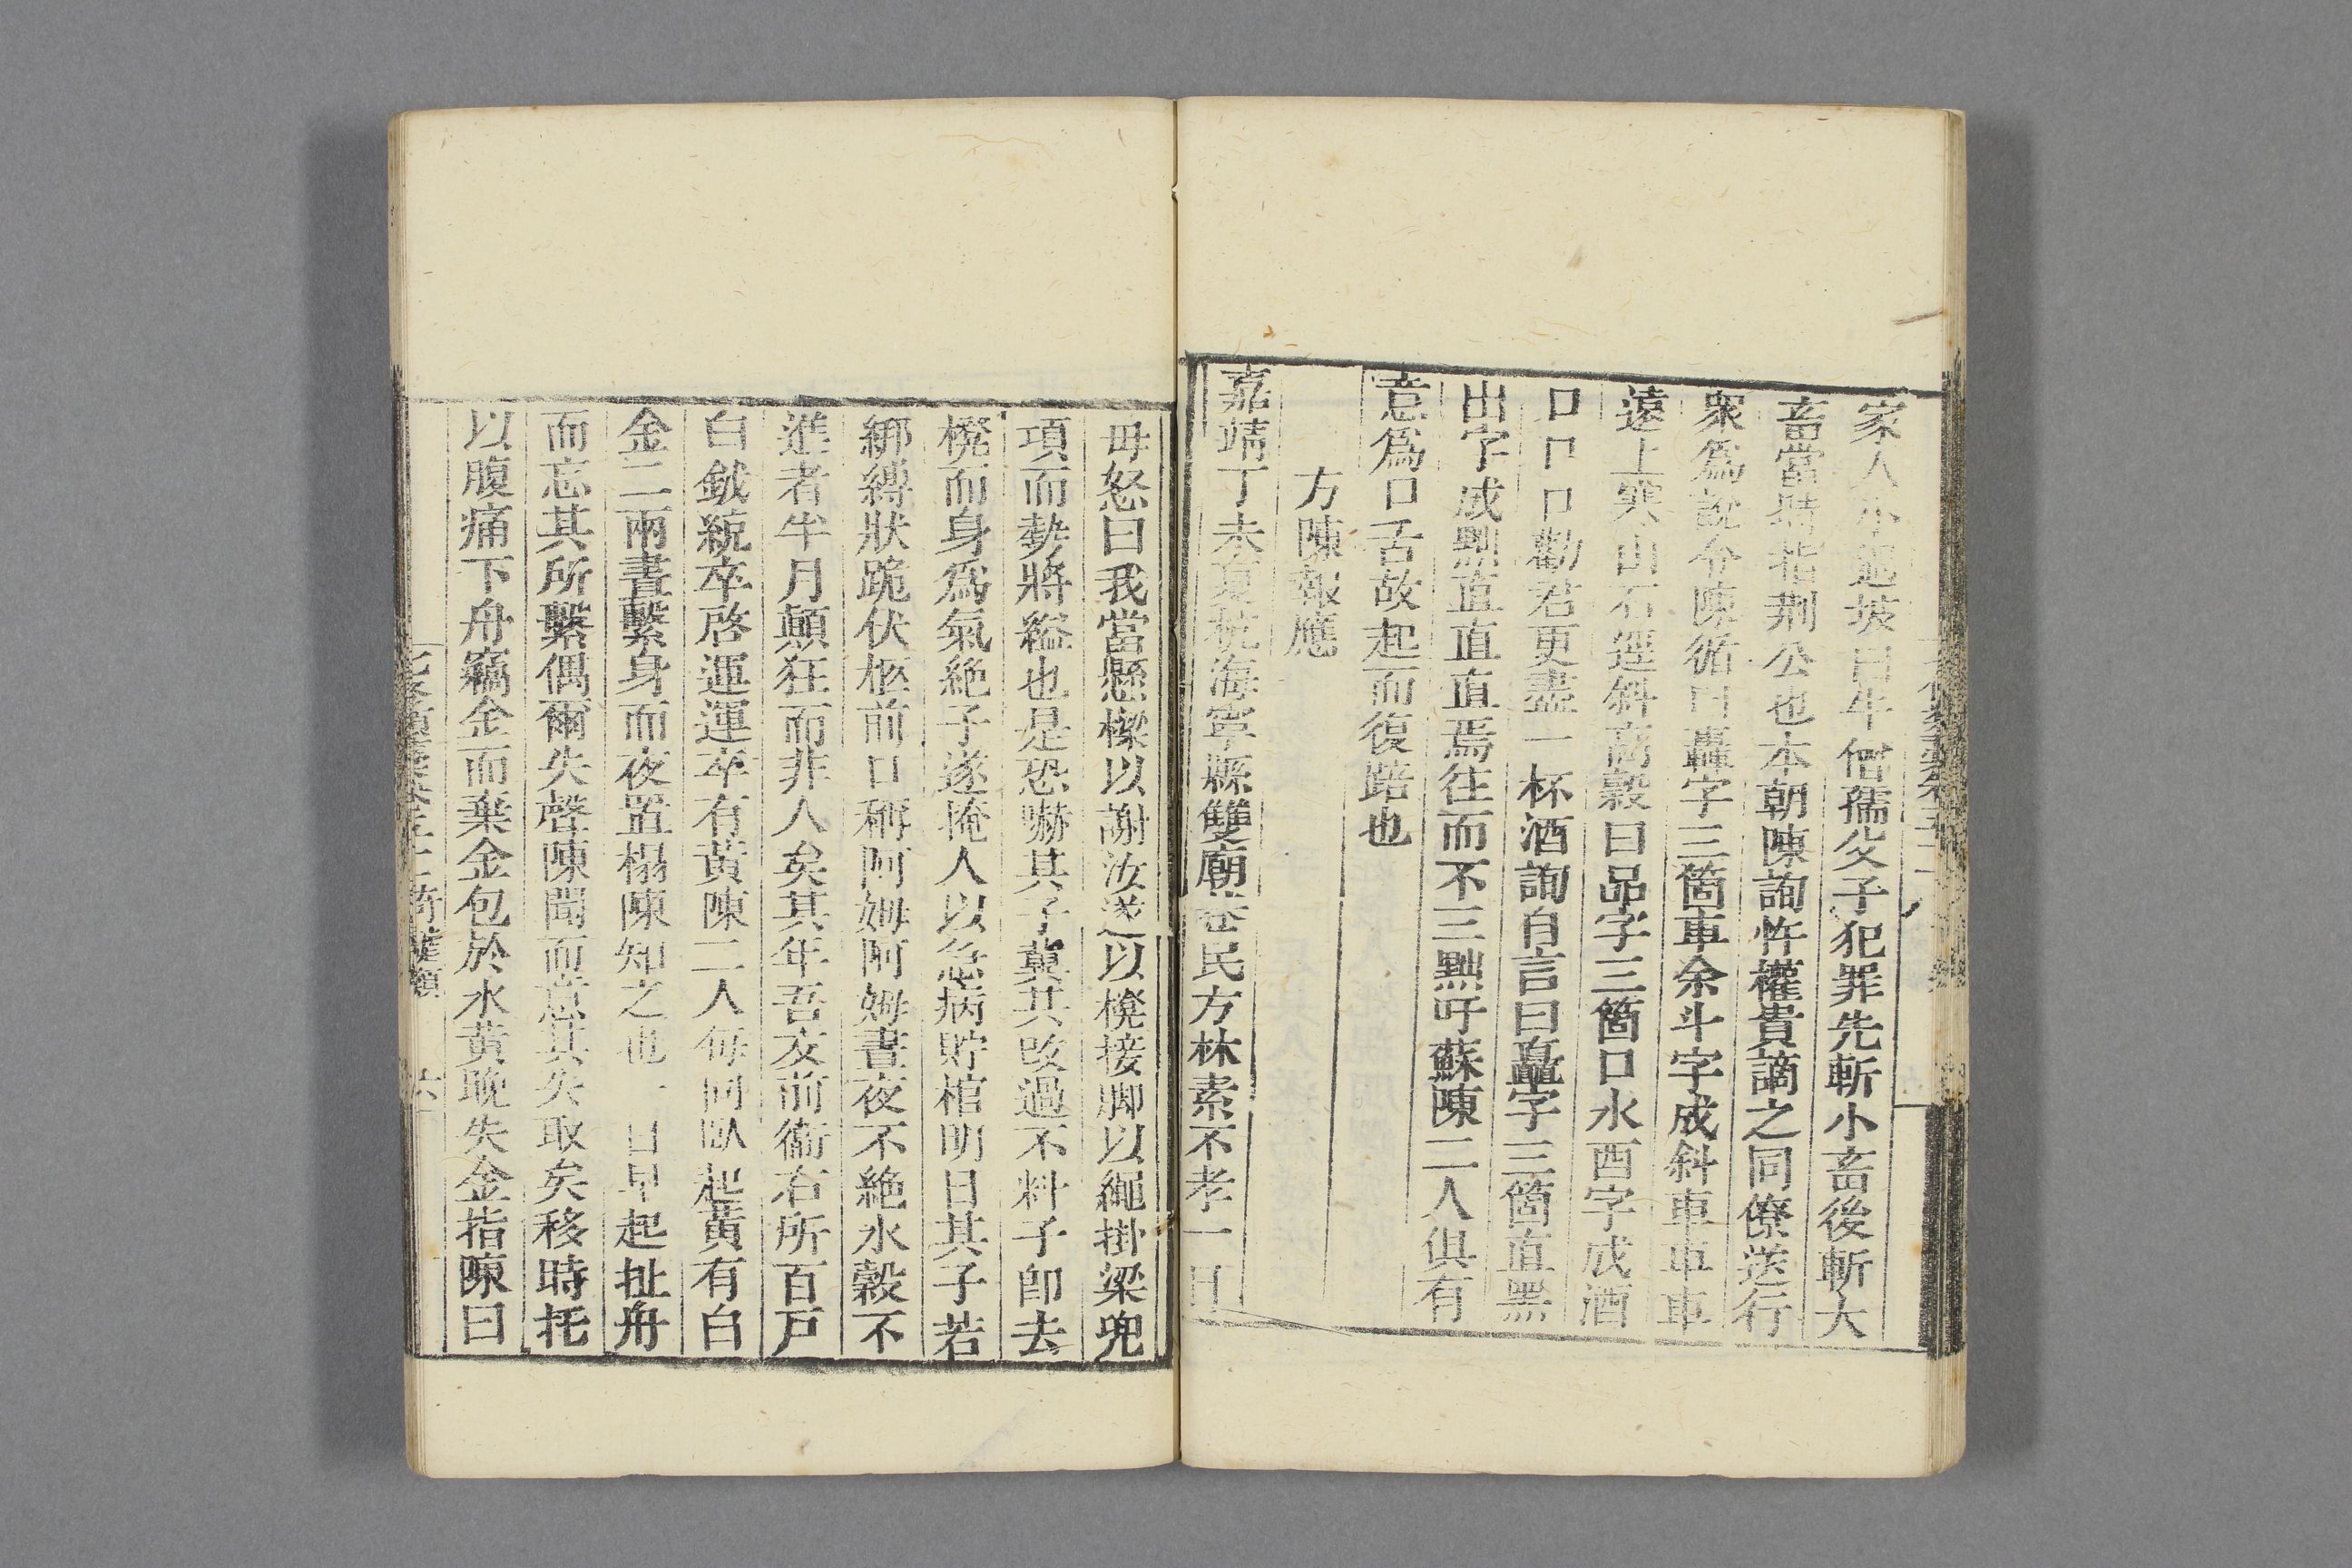 家人小過坡曰牛僧孺父子犯罪先斬小畜後斬大
畜當時指荆公也本朝陳詢忤權貴謫之同僚送行
衆爲說令陳循曰轟字三箇車余斗字成斜車車車
遠上寒山石逕斜高穀曰品字三箇口水酉字成酒
口口口勸君更盡一杯酒詢自言曰矗字三箇直黑
出字成黜直直直焉往而不三黜吁蘇陳二人俱有
意爲口舌故起而復踣也
方陳報應
嘉靖丁未夏杭海寧縣雙廟巷民方林素不孝一日
母怒曰我當懸樑以謝汝遂以櫈接脚以繩掛梁兜
項而勢將縊也是恐嚇其子冀其改過不料子即去
櫈而身爲氣絶子遂掩人以急病貯棺明日其子若
綁縛狀跪伏柩前口稱阿姆阿姆晝夜不絶水榖不
進者半月顛狂而非人矣其年吾友前衞右所百戶
白鉞統卒啓運運卒有黃陳二人每同臥起黃有白
金二兩晝繫身而夜置榻陳知之也一日早起扯舟
而忘其所繫偶爾失聲陳聞而意其失取矣移時托
以腹痛下舟竊金而棄金包於水黃晚失金指陳曰
七修類藁卷五十 奇謔類 六